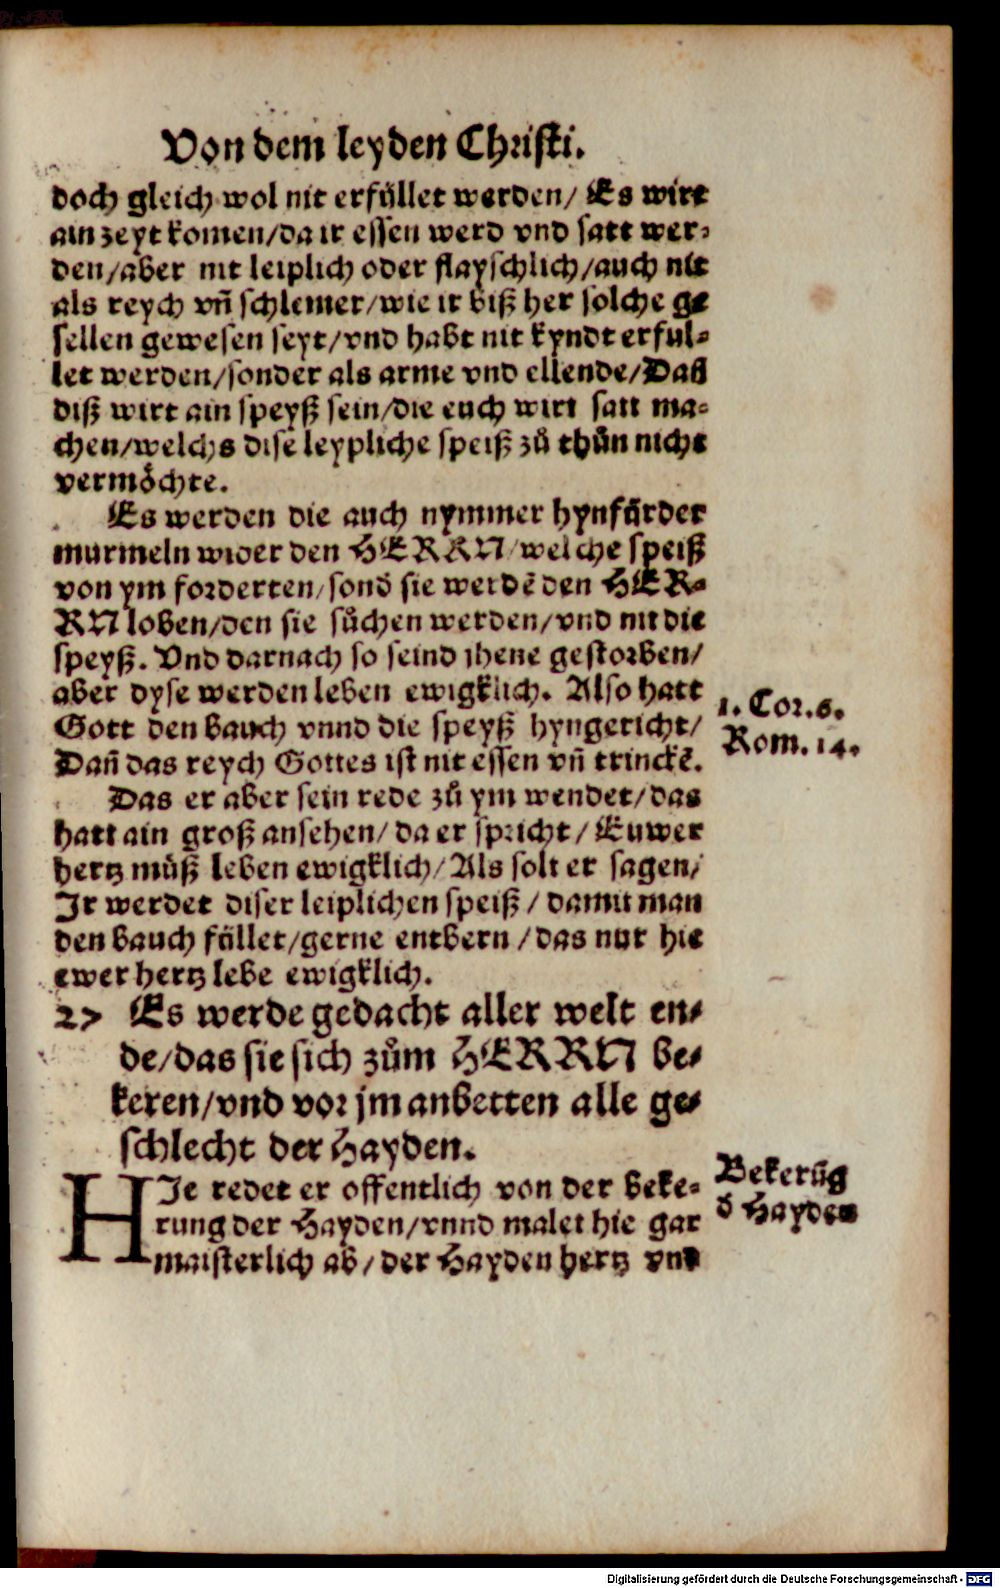 Von dem leyden Christi.
doch gleich wol nit erfüllet werden/ Es wirt
ain zeyt komen/da ir essen werd vnd satt wer-
den/aber nit leiplich oder flayschlich/auch nit
als reych vñ schlemer/wie ir biß her solche ge
sellen gewesen seyt/vnd habt nit kyndt erful-
let werden/sonder als arme vnd ellende/Daß
diß wirt ain speyß sein/die euch wirt satt ma-
chen/welchs dise leypliche speiß zů thůn nicht
vermöchte.
Es werden die auch nymmer hynfürder
murmeln wider den HERRN/welche speiß
von ym forderten/sonď sie werdē den HER-
RN loben/den sie sůchen werden/vnd nit die
speyß. Vnd darnach so seind jhene gestorben/
aber dyse werden leben ewigklich. Also hatt
Gott den bauch vnnd die speyß hyngericht/
Dañ das reych Gottes ist nit essen vñ trinckē.
1. Cor. 6.
Rom. 14.
Das er aber sein rede zů ym wendet/das
hatt ain groß ansehen/da er spricht/ Euwer
hertz můß leben ewigklich/ Als solt er sagen/
Ir werdet diser leiplichen speiß/ damit man
den bauch füllet/gerne entbern/das nur hie
ewer hertz lebe ewigklich.
27 Es werde gedacht aller welt en-
de/das sie sich zům HERRN be-
keren/vnd vor jm anbetten alle ge-
schlecht der Hayden.
HIe redet er offentlich von der beke-
rung der Hayden/vnnd malet hie gar
maisterlich ab/der Hayden hertz vnd
Bekerūg
ď Hayden
Digitalisierung gefördert durch die Deutsche Forschungsgemeinschaft - DFG